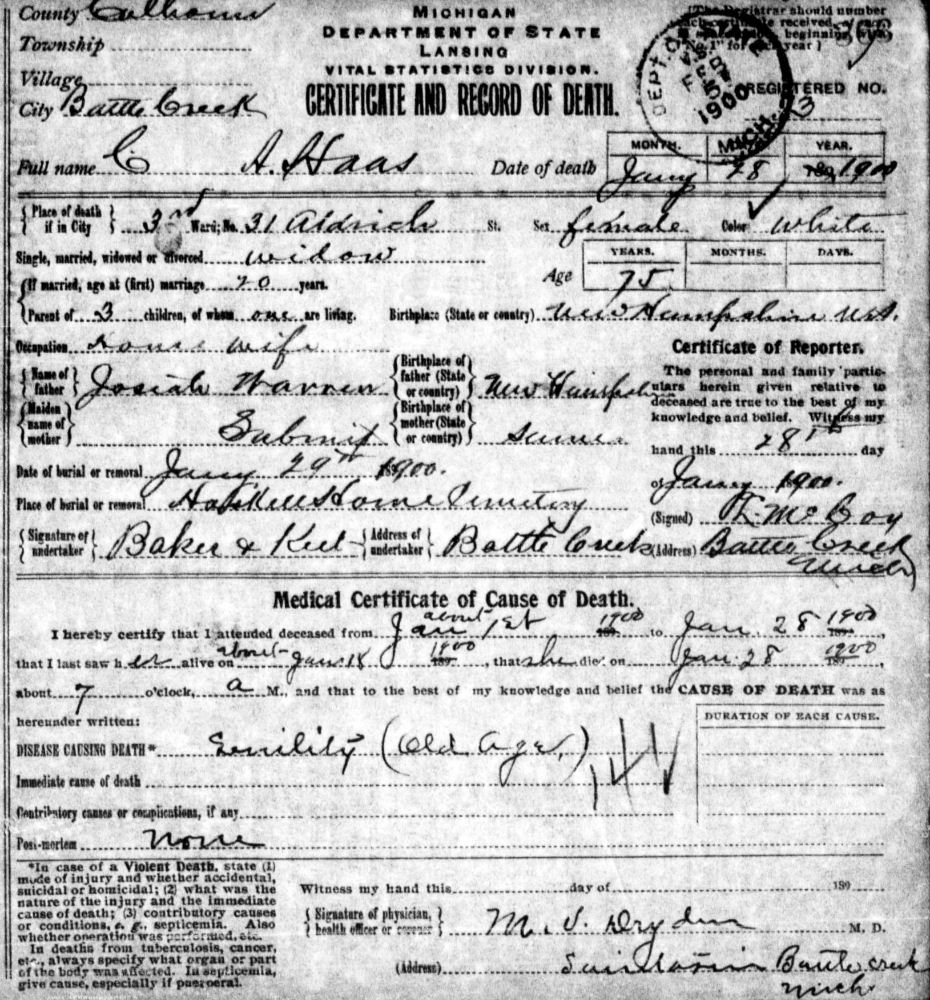 County Calhoun
MICHIGAN
DEPARTMENT OF STATE
LANSING
VITAL STATISTICS DIVISION.
CERTIFICATE AND RECORD OF DEATH.
Registrar should number
received
beginning with
"1" for each year)
Township
Village
City Battle Creek
DEPT. OF
1900
MICH.
REGISTERED NO.
Full name C A. Haas Date of death
MONTH. YEAR.
Jany 28 189 1900
{Place of death if in City} 3rd Ward; No. 31 Aldrich St. Sex female Color White
Single, married, widowed or divorced widow
Age YEARS. MONTHS. DAYS.
75
{If married, age at (first) marriage 20 years.
{Parent of 3 children, of whom one are living. Birthplace (State or country) New Hampshire
Occupation House wife
{Name of father} Josiah Warren {Birthplace of father (State or country)} New Hampshire
{Maiden name of mother} Submit {Birthplace of mother (State or country)} same
Date of burial or removal Jany 29th 1900.
Place of burial or removal Haskell Home Cemetery
{Signature of undertaker} Baker & {Address of undertaker} Battle Creek
Certificate of Reporter.
The personal and family partic-
ulars herein given relative to
deceased are true to the best of my
knowledge and belief. Witness my
hand this 28th day
of Jany 1900.
(Signed) McCoy
(Address) Battle Creek
Mich
Medical Certificate of Cause of Death.
I hereby certify that I attended deceased from about Jan 1st 1900 to Jan. 28 1900,
that I last saw her alive on about Jan 18 1900, that she died on Jan 28 1900
about 7 o'clock, a M., and that to the best of my knowledge and belief the CAUSE OF DEATH was as
hereunder written:
DURATION OF EACH CAUSE.
DISEASE CAUSING DEATH* Senility (Old Age.)
Immediate cause of death
Contributory causes or complications, if any
Post-mortem None
*In case of a Violent Death, state (1)
mode of injury and whether accidental,
suicidal or homicidal; (2) what was the
nature of the injury and the immediate
cause of death; (3) contributory causes
or conditions, e. g., septicemia. Also
whether operation was performed, etc.
In deaths from tuberculosis, cancer,
etc., always specify what organ or part
of the body was affected. In septicemia,
give cause, especially if puerperal.
Witness my hand this day of 189
{Signature of physician, health officer or coroner} M. S. Dryden M. D.
(Address) Battle Creek
Mich